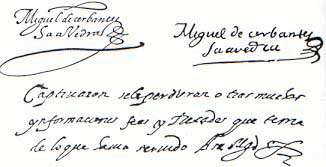 Miguel de cerbantes
Saavedra
Miguel de cerbantes
Saavedra
Captivaron se le perdieron otras muchas
ynformaciones fees y Recados que tenia
de lo que
servido